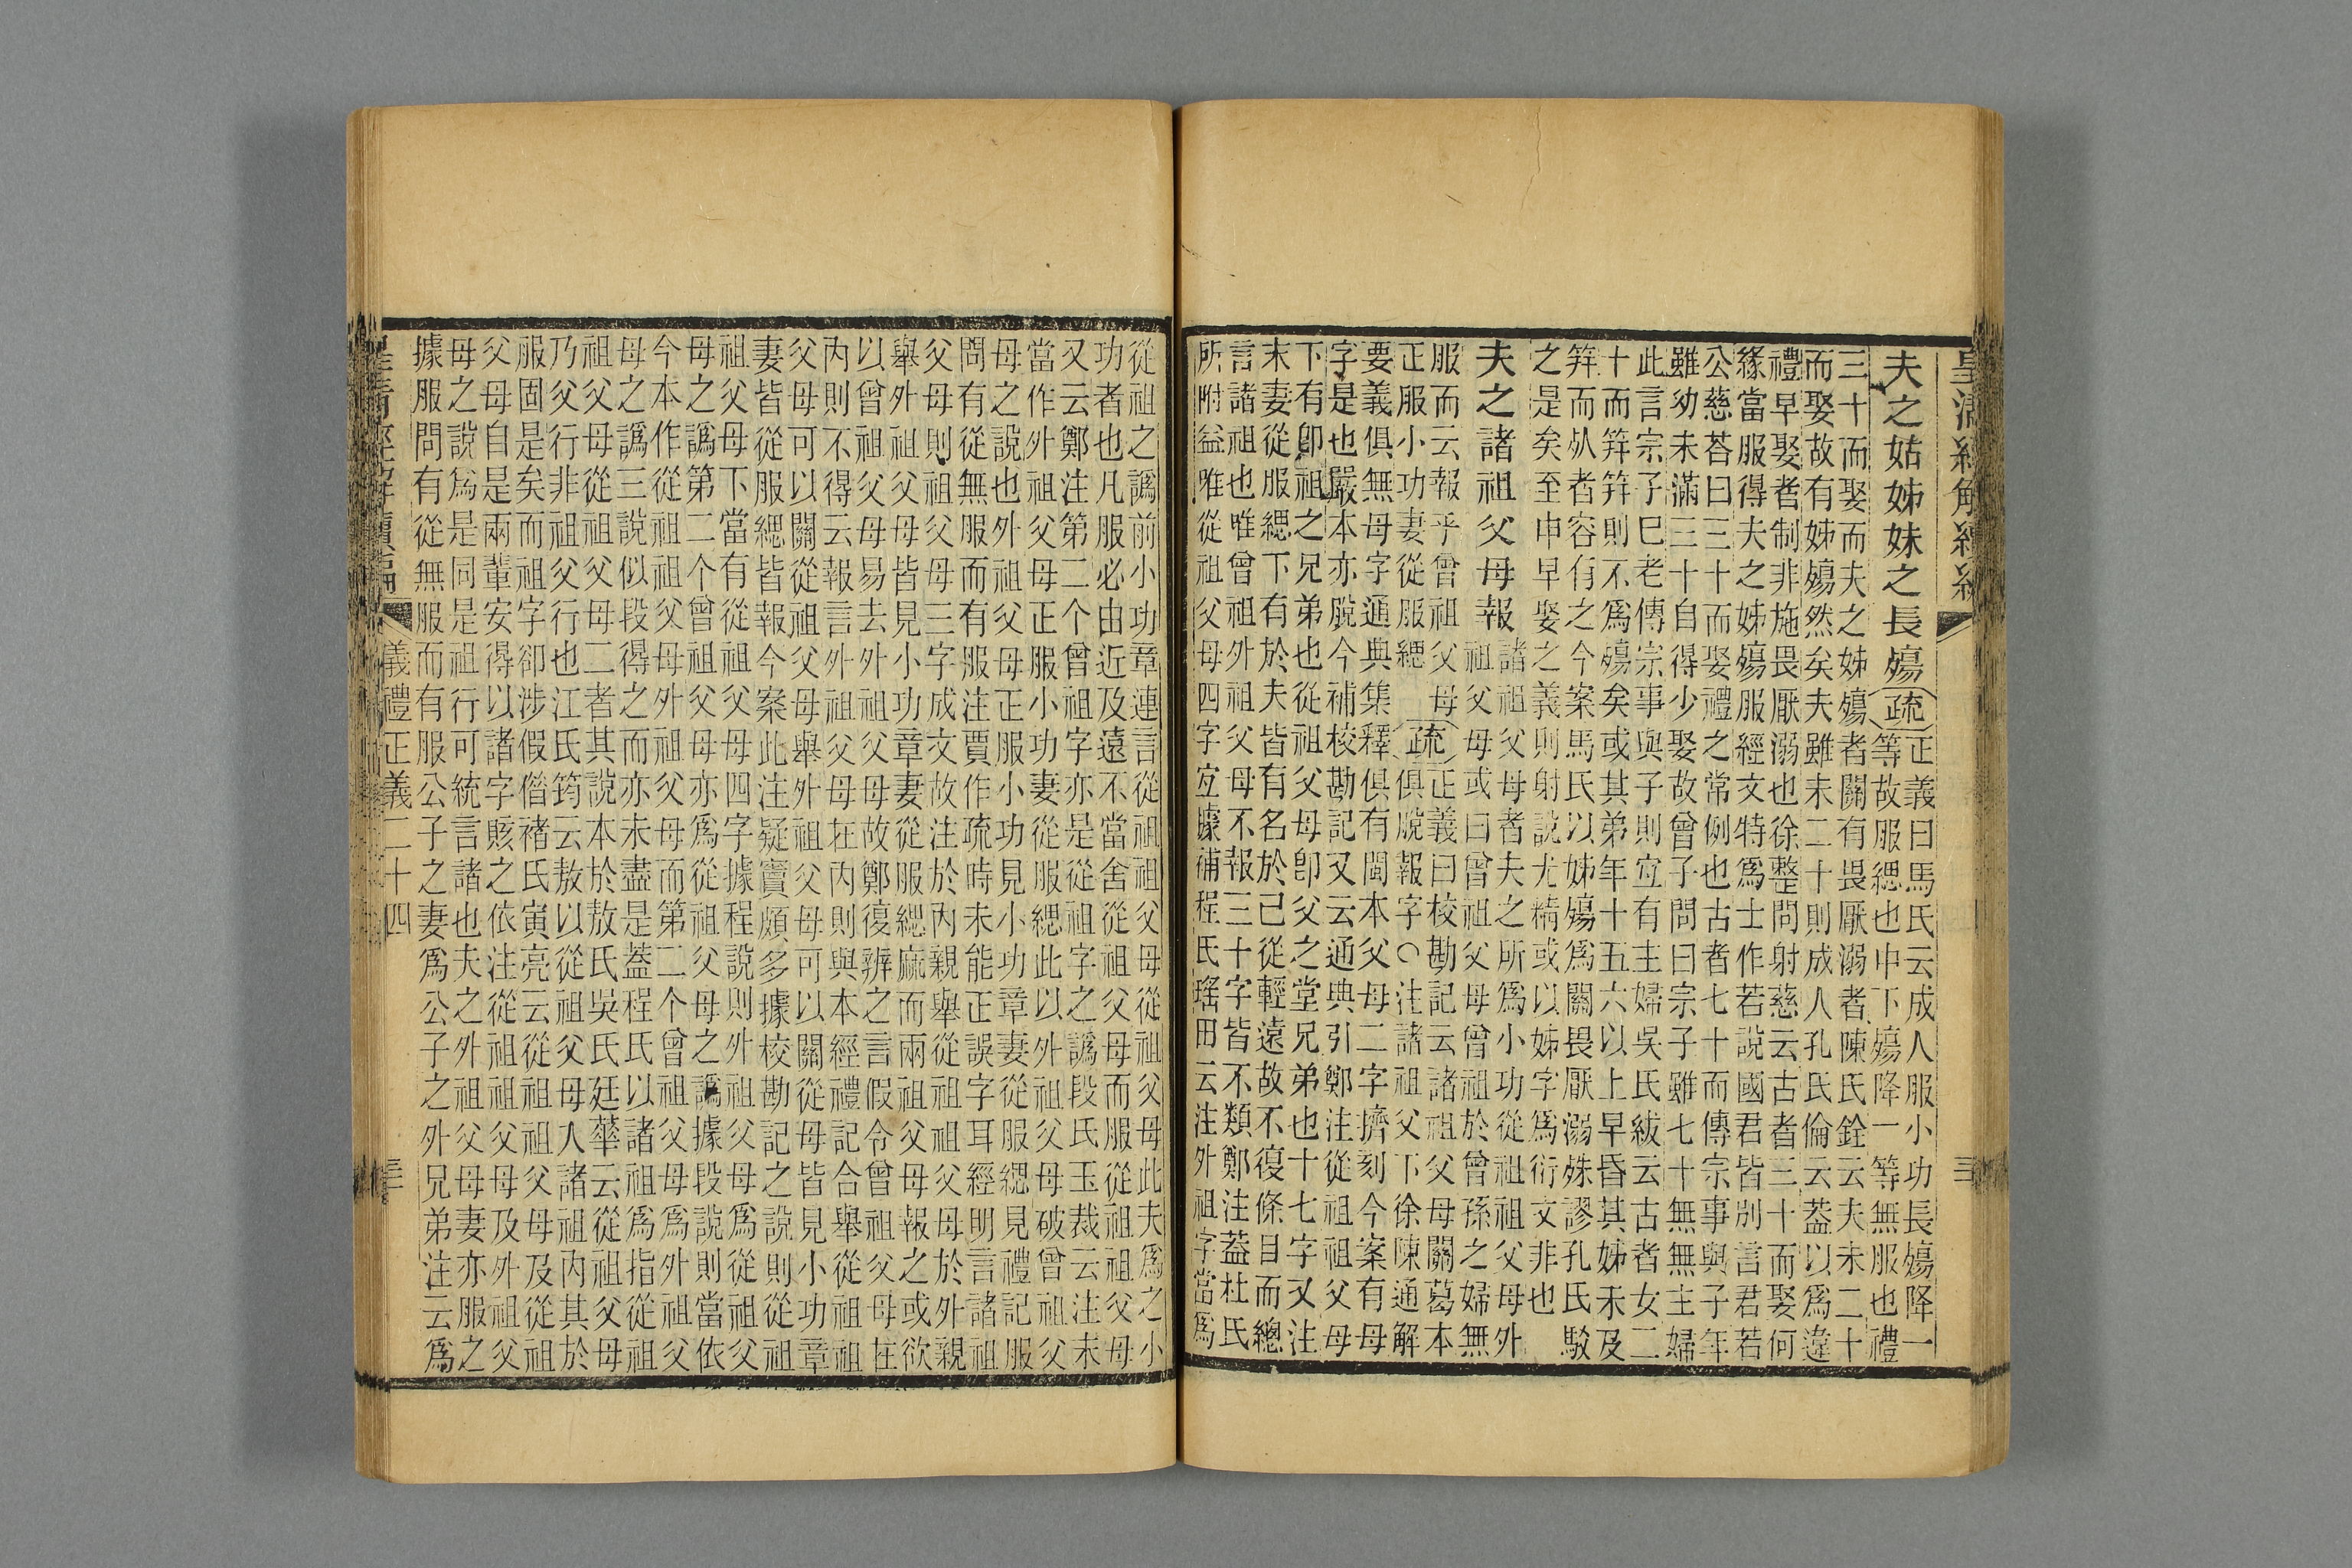 皇清經解續編
夫之姑姊妹之長殤疏正義曰馬氏云成人服小功長殤降一
等故服緦也中下殤降一等無服也禮
三十而娶而夫之姊殤者關有畏厭溺者陳氏銓云夫未二十
而娶故有姊殤然矣夫雖未二十則成人孔氏倫云葢以爲違
禮早娶者制非施畏厭溺也徐整問射慈云古者三十而娶何
緣當服得夫之姊殤服經文特爲士作若說國君皆別言君若
公慈荅曰三十而娶禮之常例也古者七十而傳宗事與子年
雖幼未滿三十自得少娶故曾子問曰宗子雖七十無無主婦
此言宗子巳老傳宗事與子則宐有主婦吳氏紱云古者女二
十而筓筓則不爲殤矣或其弟年十五六以上早昏其姊未及
筓而夙者容有之今案馬氏以姊殤爲關畏厭溺殊謬孔氏駮
之是矣至申早娶之義則射說尤精或以姊字爲衍文非也
夫之諸祖父母報諸祖父母者夫之所爲小功從祖祖父母外
祖父母或曰曾祖父母曾祖於曾孫之婦無
服而云報乎曾祖父母
正服小功妻從服緦疏正義曰校勘記云諸祖父母關葛本
俱脫報字○注諸祖父下徐陳通解
要義俱無母字通典集釋俱有閩本父母二字擠刻今案有母
字是也嚴本亦脫今補校勘記又云通典引鄭注從祖祖父母
下有卽祖之兄弟也從祖父母卽父之堂兄弟也十七字又注
末妻從服緦下有於夫皆有名於己從輕遠故不復條目而總
言諸祖也唯曾祖外祖父母不報三十字皆不類鄭注葢杜氏
所附益唯從祖父母四字宐據補程氏瑤田云注外祖字當爲
從祖之譌前小功章連言從祖祖父母從祖父母此夫爲之小
功者也凡服必由近及遠不當舍從祖父母而服從祖祖父母
又云鄭注第二个曾祖字亦是從祖字之譌段氏玉裁云注未
當作外祖父母正服小功妻從服緦此以外祖父母破曾祖父
母之說也外祖父母正服小功見小功章妻從服緦見禮記服
問有從無服而有服注賈作疏時未能正誤字耳經明言諸祖
父母則祖父母三字成文故注於內親舉從祖祖父母於外親
舉外祖父母皆見小功章妻從服緦麻而兩祖父母報之或欲
以曾祖父母易去外祖父母故鄭復辨之言假令曾祖父母在
內則不得云報言外祖父母在內則與本經禮記合舉從祖祖
父母可以關從祖父母舉外祖父母可以關從母皆見小功章
妻皆從服緦皆報今案此注疑竇頗多據校勘記之說則從祖
祖父母下當有從祖父母四字據程說則外祖父母爲從祖父
母之譌第二个曾祖父母亦爲從祖父母之譌據段說則當依
今本作從祖祖父母外祖父母而第二个曾祖父母爲外祖父
母之譌三說似段得之而亦未盡是葢程氏以諸祖爲指從祖
祖父母從祖父母二者其說本於敖氏吳氏廷華云從祖父母
乃父行非祖父行也江氏筠云敖以從祖父母人諸祖內其於
服固是矣而祖字卻涉假偕褚氏寅亮云從祖祖父母及從祖
父母自是兩輩安得以諸字賅之依注從祖祖父母及外祖父
母之說爲是同是祖行可統言諸也夫之外祖父母妻亦服之
據服問有從無服而有服公子之妻爲公子之外兄弟注云爲
皇清經解續編　儀禮正義二十四